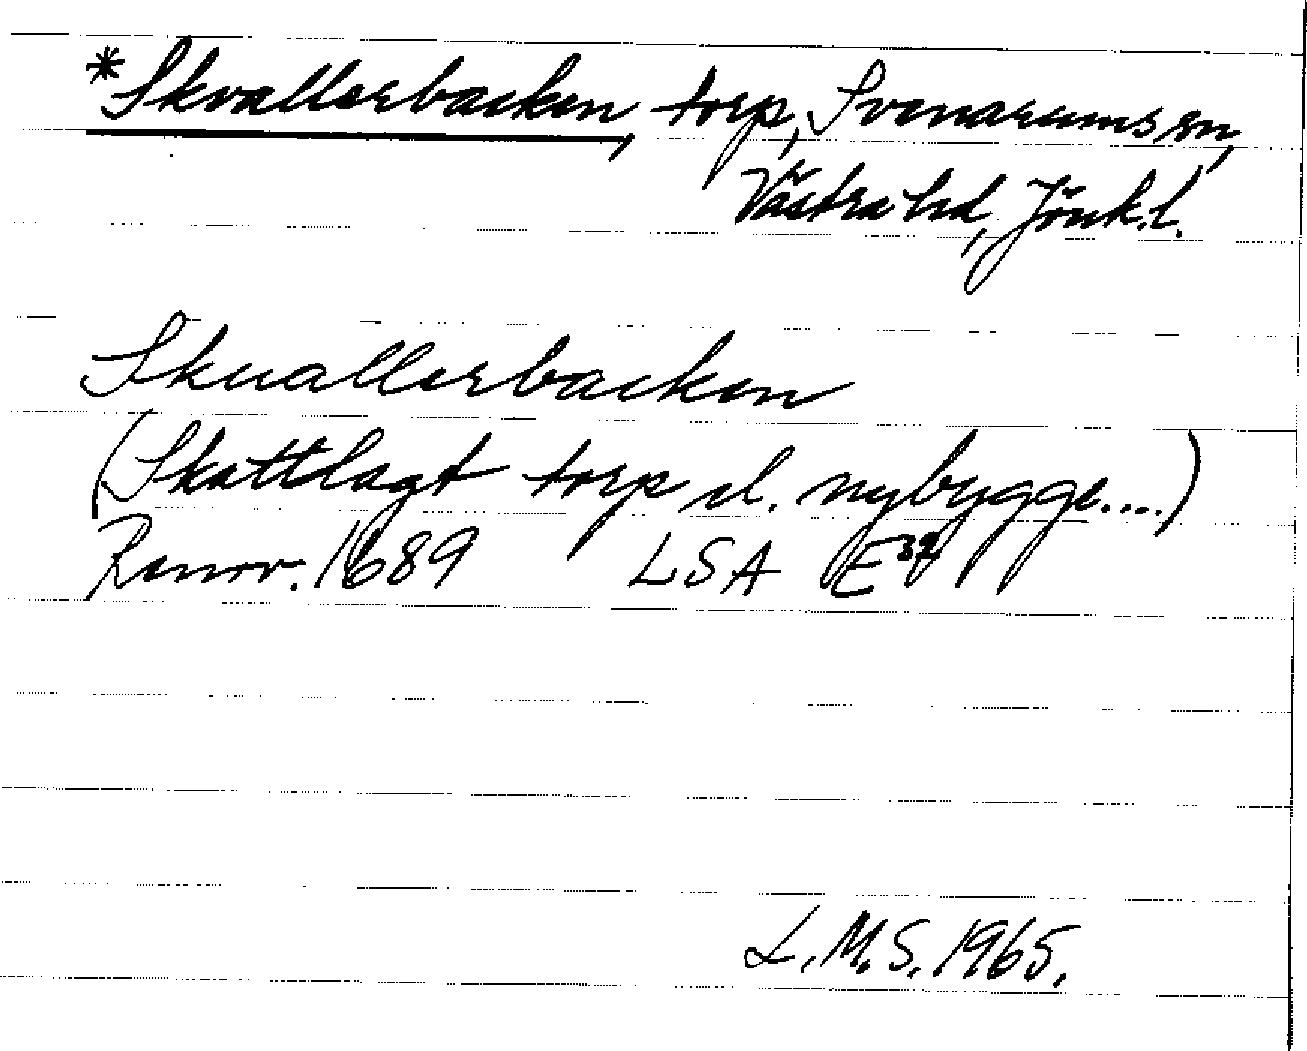 *Skvallerbacken, torp, Svenarums sn,
Västra hd, Jönk.l.
Skuallerbacken
(Skattlagt torp el. nybygge....)
Renov. 1689 LSA E
L.M.S. 1965.